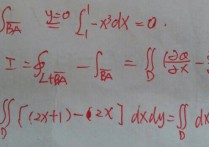 ∫_{BA} y=0 ∫_1^1 -x³dx = 0.
I = ∮_{L+BA} - ∫_{BA} = ∬_D (∂Q/∂x -
∬_D [(2x+1) - (2x] dxdy = ∬_D dx